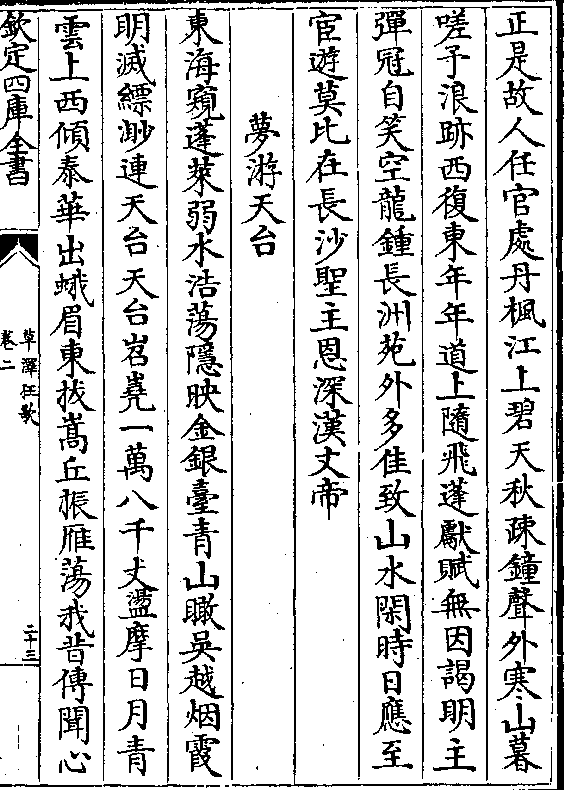 正是故人任官處丹楓江上碧天秋疎鐘聲外寒山暮
嗟予浪跡西復東年年道上隨飛蓬獻賦無因謁明主
彈冠自笑空龍鍾長洲苑外多佳致山水閑時日應至
宦遊莫比在長沙聖主恩深漢文帝
夢游天台
東海窺蓬萊弱水浩蕩隱映金銀臺青山瞰吳越烟霞
明滅縹渺連天台天台岧嶤一萬八千丈盪摩日月青
雲上西傾泰華出蛾眉東拔嵩丘振雁蕩我昔傳聞心
欽定四庫全書
草澤狂歌
卷二
二十三